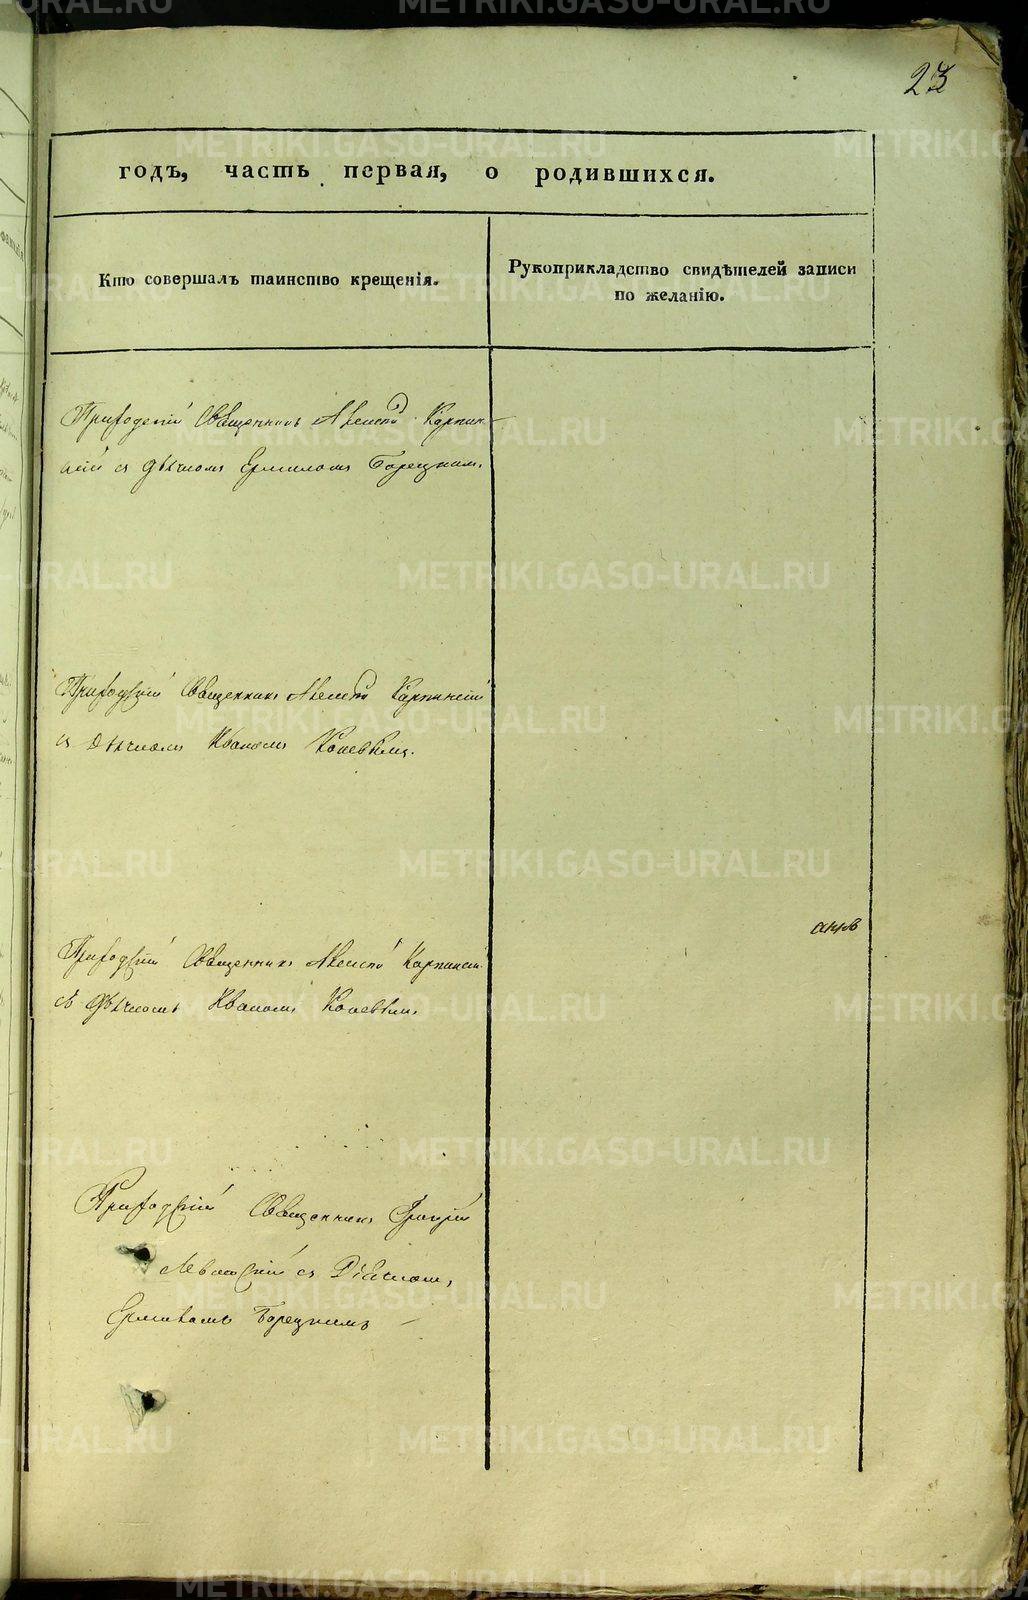 23
годъ, часть первая, о родившихся.
Кто совершалъ таинство крещенія.
Рукоприкладство свидѣтелей записи
по желанію.
Приходскій Священникъ Алексѣй Карпин-
скій съ дьячкомъ Ермиломъ Борецкимъ.
Приходскій Священникъ Алексѣй Карпинскій
съ Дьячкомъ Иваномъ Коневымъ.
Приходскій Священникъ Алексѣй Карпинскій
съ дьячкомъ Иваномъ Коневымъ.
Приходскій Священникъ
съ Дьячкомъ
Ермиломъ Борецкимъ
METRIKI.GASO-URAL.RU